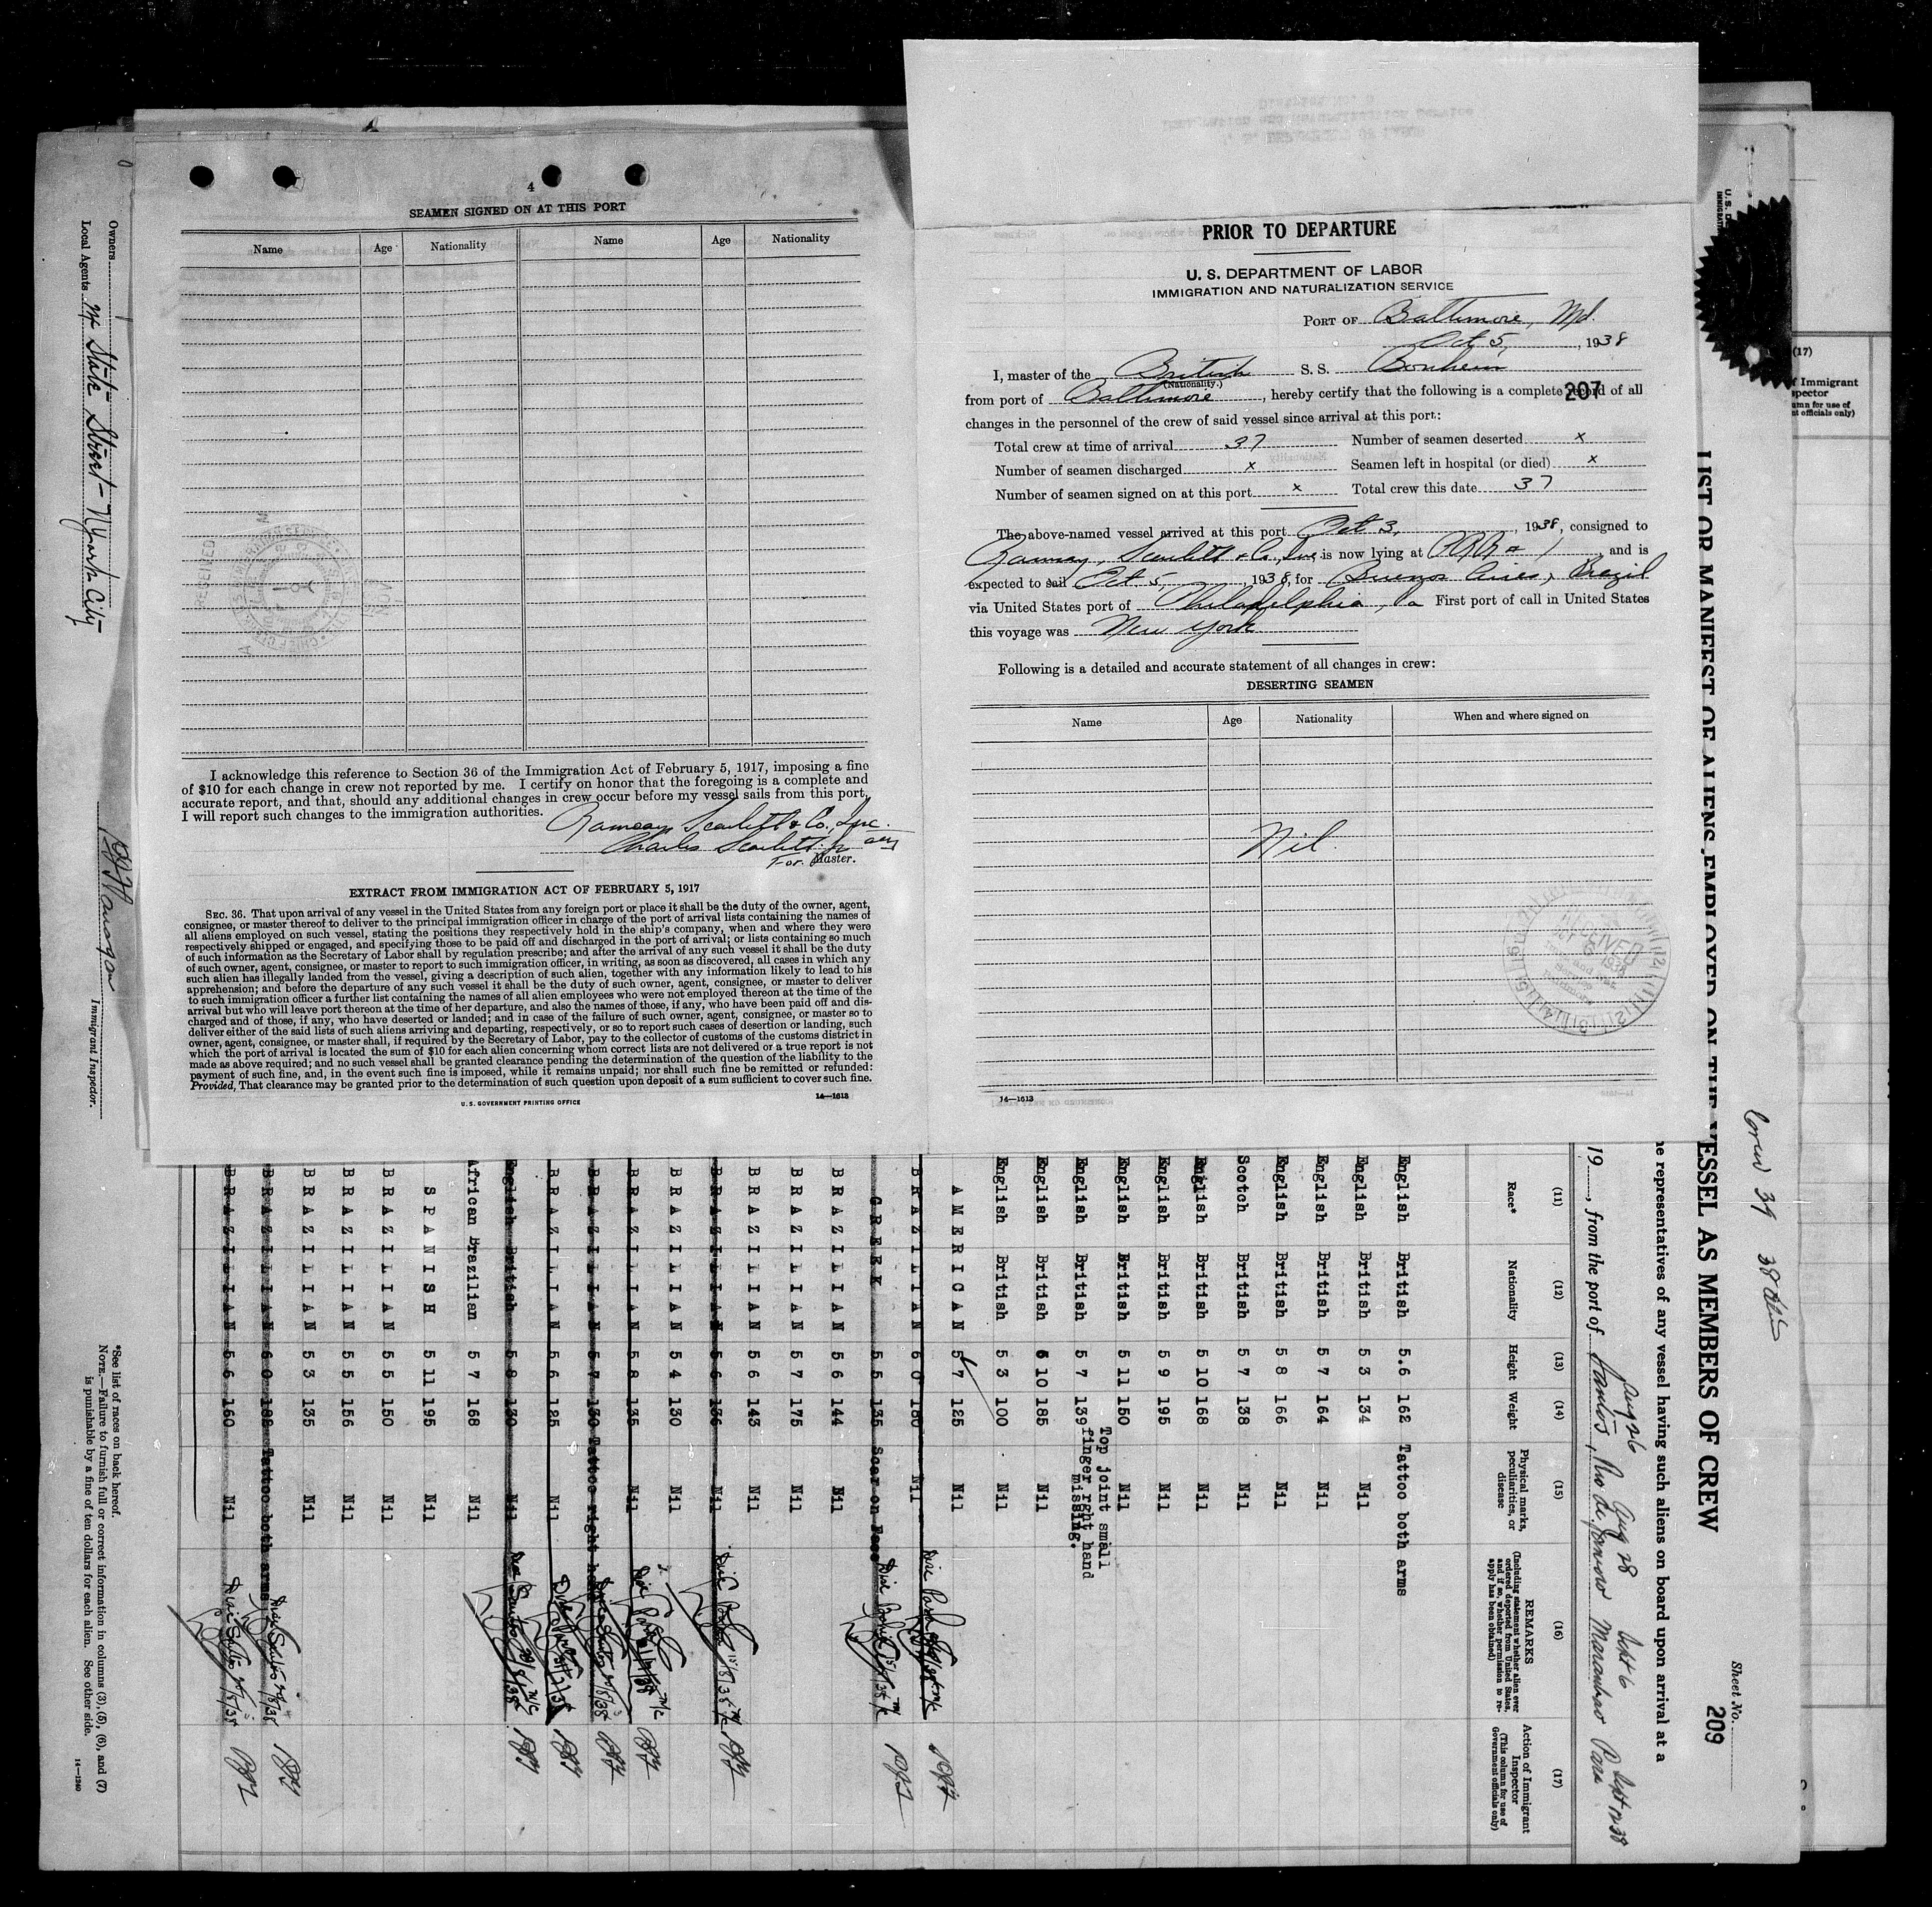 4
SEAMEN SIGNED ON AT THIS PORT
Name Age Nationality Name Age Nationality
I acknowledge this reference to Section 36 of the Immigration Act of February 5, 1917, imposing a fine
of $10 for each change in crew not reported by me. I certify on honor that the foregoing is a complete and
accurate report, and that, should any additional changes in crew occur before my vessel sails from this port,
I will report such changes to the immigration authorities.
Ramsay, Scarlett & Co., Inc.
Charles Scarlett Jr
For Master.
EXTRACT FROM IMMIGRATION ACT OF FEBRUARY 5, 1917
SEC. 36. That upon arrival of any vessel in the United States from any foreign port or place it shall be the duty of the owner, agent,
consignee, or master thereof to deliver to the principal immigration officer in charge of the port of arrival lists containing the names of
all aliens employed on such vessel, stating the positions they respectively hold in the ship's company, when and where they were
respectively shipped or engaged, and specifying those to be paid off and discharged in the port of arrival; or lists containing so much
of such information as the Secretary of Labor shall by regulation prescribe; and after the arrival of any such vessel it shall be the duty
of such owner, agent, consignee, or master to report to such immigration officer, in writing, as soon as discovered, all cases in which any
such alien has illegally landed from the vessel, giving a description of such alien, together with any information likely to lead to his
apprehension; and before the departure of any such vessel it shall be the duty of such owner, agent, consignee, or master to deliver
to such immigration officer a further list containing the names of all alien employees who were not employed thereon at the time of the
arrival but who will leave port thereon at the time of her departure, and also the names of those, if any, who have been paid off and dis-
charged and of those, if any, who have deserted or landed; and in case of the failure of such owner, agent, consignee, or master so to
deliver either of the said lists of such aliens arriving and departing, respectively, or so to report such cases of desertion or landing, such
owner, agent, consignee, or master shall, if required by the Secretary of Labor, pay to the collector of customs of the customs district in
which the port of arrival is located the sum of $10 for each alien concerning whom correct lists are not delivered or a true report is not
made as above required; and no vessel shall be granted clearance pending the determination of the question of the liability to the
payment of such fine, and, in the event such fine is imposed, while it remains unpaid; nor shall such fine be remitted or refunded:
Provided, That clearance may be granted prior to the determination of such question upon deposit of a sum sufficient to cover such fine.
U. S. GOVERNMENT PRINTING OFFICE 14—1613
PRIOR TO DEPARTURE
U. S. DEPARTMENT OF LABOR
IMMIGRATION AND NATURALIZATION SERVICE
PORT OF Baltimore, Md.
Oct 5, 1938
I, master of the British S. S. Bonheur
(Nationality.)
from port of Baltimore, hereby certify that the following is a complete record of all
207
changes in the personnel of the crew of said vessel since arrival at this port:
Total crew at time of arrival 37 Number of seamen deserted x
Number of seamen discharged x Seamen left in hospital (or died) x
Number of seamen signed on at this port x Total crew this date 37
The above-named vessel arrived at this port Oct 3, 1938, consigned to
Ramsay, Scarlett & Co., Inc, is now lying at 1, and is
expected to sail Oct 5, 1938, for Buenos Aires, Brazil
via United States port of Philadelphia, Pa First port of call in United States
this voyage was New York
Following is a detailed and accurate statement of all changes in crew:
DESERTING SEAMEN
Name Age Nationality When and where signed on
Nil
14—1613
Owners
Local Agents State Street - N York City
Immigrant Inspector.
*See list of races on back hereof.
NOTE.—Failure to furnish full or correct information in columns (3), (5), (6), and (7)
is punishable by a fine of ten dollars for each alien. See other side.
14—1240
Sheet No.
209
Crew 39 38
LIST OR MANIFEST OF ALIENS EMPLOYED ON THE VESSEL AS MEMBERS OF CREW
he representatives of any vessel having such aliens on board upon arrival at a
Aug 26 Aug 28 Sept 6 Sept 12 38
19 , from the port of Santos, Rio de Janeiro Maranhao Para
(11) (12) (13) (14) (15) (16) (17)
Race* Nationality Height Weight Physical marks, peculiarities, or disease REMARKS (Including statement whether alien ever ordered deported from United States, and if so, whether permission to re-apply has been obtained) Action of Immigrant Inspector (This column for use of Government officials only)
English British 5.6 162 Tattoo both arms
English British 5 3 134 Nil
English British 5 7 164 Nil
English British 5 8 166 Nil
Scotch British 5 7 138 Nil
English British 5 10 168 Nil
English British 5 9 195 Nil
English British 5 11 150 Nil
English British 5 7 139 Top joint small finger rght hand missing.
English British 6 10 185 Nil
English British 5 3 100 Nil
AMERICAN 5 7 125 Nil
BRAZILIAN 6 0 180 Nil
GREEK 5 5 135 Scar on Face
BRAZILIAN 5 6 144 Nil
BRAZILIAN 5 7 175 Nil
BRAZILIAN 5 6 143 Nil
BRAZILIAN 5 6 136 Nil
BRAZILIAN 5 4 130 Nil
BRAZILIAN 5 8 135 Nil
BRAZILIAN 5 7 130 Tattoo right hand
BRAZILIAN 5 6 185 Nil
English British 5 8 130 Nil
African Brazilian 5 7 168 Nil
SPANISH 5 11 195 Nil
BRAZILIAN 5 5 150 Nil
BRAZILIAN 5 5 156 Nil
BRAZILIAN 5 3 135 Nil
BRAZILIAN 6 0 182 Tattoo both arms
BRAZILIAN 5 6 160 Nil
(17)
f Immigrant
spector
umn for use of
nt officials only)